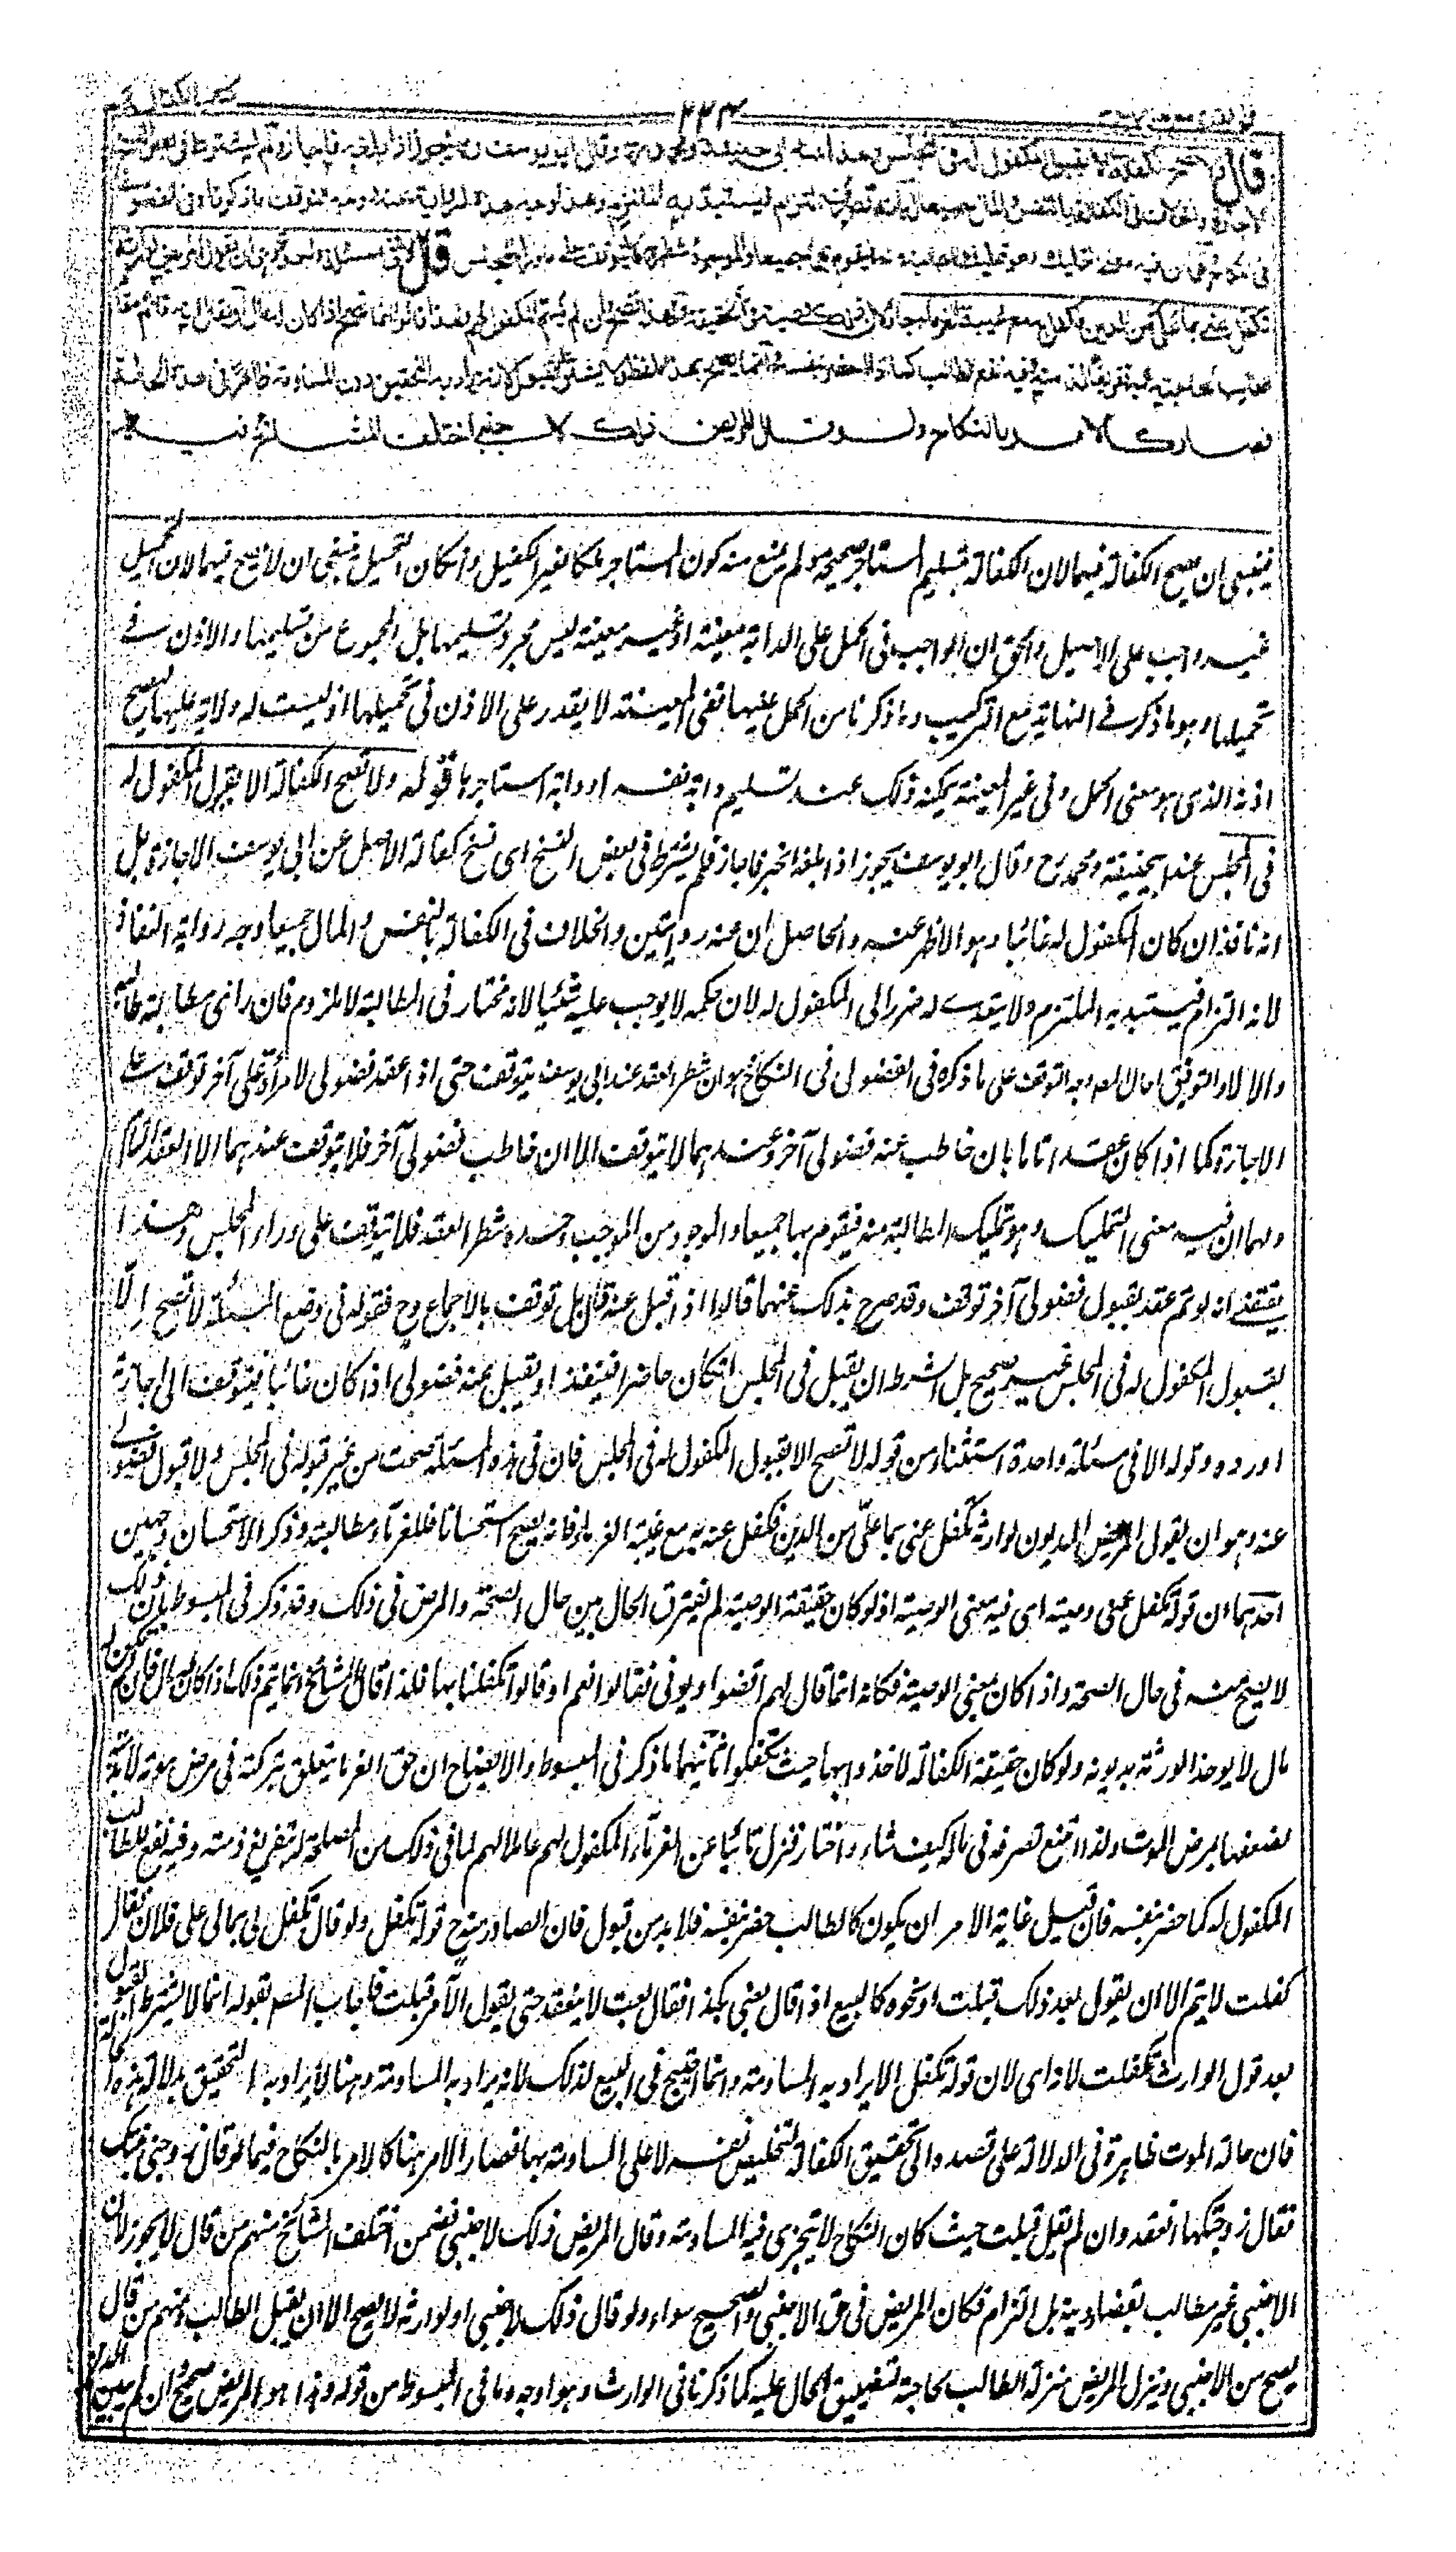 ٢٢٣
قال ولا تصح الكفالة الا بقبول المكفول له في المجلس وهذا عند ابي حنيفة ومحمد رح وقال ابو يوسف رح يجوز اذا بلغه فاجاز ولم يشترط في بعض النسخ
الاجازة والخلاف في الكفالة بالنفس والمال جميعا له انه تصرف التزام فيستبد به الملتزم وهذا وجه هذه الرواية عنه ووجه التوقف ما ذكرناه في الفضولي
في النكاح ولهما ان فيه معنى التمليك وهو تمليك المطالبة منه فيقوم بهما جميعا والموجود شطره فلا يتوقف على ما وراء المجلس قال الا في مسئلة واحدة وهي ان يقول المريض لوارثه
تكفل عني بما علي من الدين فكفل به مع غيبة الغرماء جاز لان ذلك وصية في الحقيقة ولهذا تصح وان لم يسم المكفول لهم ولهذا قالوا انما تصح اذا كان له مال او يقال انه قائم مقام
الطالب لحاجته اليه تفريغا لذمته وفيه نفع الطالب كما اذا حضر بنفسه وانما يصح بهذا اللفظ ولا يشترط القبول لانه يراد به التحقيق دون المساومة ظاهرا في هذه الحالة
فصار كالامر بالنكاح ولو قال المريض ذلك لاجنبي اختلف المشايخ فيه
فينبغي ان يصح الكفالة فيهما لان الكفالة بتسليم المستاجر صحيحة ولم يمنع منه كون المستاجر ملكا لغير الكفيل وان كان التحميل فينبغي ان لا يصح فيهما لان التحميل
غير واجب على الاصيل والحق ان الواجب في الحمل على الدابة معينة او غير معينة ليس مجرد تسليمها بل المجموع من تسليمها والاذن في
تحميلها وهو ما ذكر في النهاية مع التركيب وما ذكرنا من الحمل عنها ففي المعينة لا يقدر على الاذن في تحميلها اذ ليست له ولاية عليها ليصح
اذنه الذي هو معنى الحمل وفي غير المعينة يمكنه ذلك عند تسليم دابة نفسه او دابة استاجرها قوله ولا تصح الكفالة الا بقبول المكفول له
في المجلس عند ابيحنيفة ومحمد رح وقال ابو يوسف يجوز اذا بلغه الخبر فاجاز فلم يشترط في بعض النسخ اى نسخ كفالة الاصل عن ابي يوسف الاجازة بل
انه نافذ ان كان المكفول له غائبا وهو الاظهر عنه والحاصل ان عنه روايتين والخلاف في الكفالة بالنفس والمال جميعا وجه رواية النفاذ
لانه التزام فيستبد به الملتزم ولا يتعدى له ضرر الى المكفول له لان حكمه لا يوجب عليه شيئا لانه مختار في المطالبة لا ملزوم فان راى مطالبته طالبه
والا لا والتوفيق احال له وجه التوقف على ما ذكره في الفضولي في النكاح هو ان شطر العقد عند ابي يوسف يتوقف حتى اذا عقد فضولي لامرأة على آخر توقف على
الاجازة كما اذا كان عقدا تاما بان خاطب عنه فضولي آخر وعندهما لا يتوقف الا ان خاطب فضولي آخر فلا يتوقف عندهما الا العقد التام
ولهما ان فيه معنى التمليك وهو تمليك المطالبة منه فيقوم بهما جميعا والموجود من الموجب وحده شطر العقد فلا يتوقف على وراء المجلس وهذا
يقتضي انه لو تم عقد بقبول فضولي آخر توقف وقد صرح بذلك عنهما قالوا اذا قبل عنه قابل توقف بالاجماع وح فقوله في وضع المسئلة لا تصح الا
بقبول المكفول له في المجلس غير صحيح بل الشرط ان يقبل في المجلس ان كان حاضرا فينفذ او يقبل عنه فضولي اذا كان غائبا فيتوقف الى اجازته
او رده وقوله الا في مسئلة واحدة استثناء من قوله لا تصح الا بقبول المكفول له في المجلس فان في هذه المسئلة صحت من غير قبوله في المجلس ولا قبول فضولي
عنه وهو ان يقول المريض المديون لوارثه تكفل عني بما علي من الدين فكفل عنه به مع غيبة الغرماء فانه يصح استحسانا فللغرماء مطالبته وذكر الاستحسان وجهين
احدهما ان قوله تكفل عني وصية اى فيه معنى الوصية اذ لو كان حقيقة الوصية لم يفترق الحال بين حال الصحة والمرض في ذلك وقد ذكر في المبسوط بان ذلك
لا يصح منه في حال الصحة واذا كان معنى الوصية فكانه انما قال لهم اقضوا ديوني فقالوا نعم او قالوا تكفلنا بها فلذا قال المشايخ انما يتم ذلك اذا كان له مال فان لم يكن له
مال لا يوخذ الورثة بديونه ولو كان حقيقة الكفالة لاخذوا بها حيث تكفلوا ثانيهما ما ذكر في المبسوط والايضاح ان حق الغرما يتعلق بتركته في مرض موته لا بذمته
لضعفها بمرض الموت ولذا امتنع تصرفه في ماله كيف شاء واختار فنزل نائبا عن الغرماء المكفول لهم عاملا لهم لما في ذلك من المصلحة له بتفريغ ذمته وفيه نفع للطالب
المكفول له كما حضر بنفسه فان قيل غاية الامر ان يكون كالطالب حضر بنفسه فلا بد من قبول فان الصادر منه ح قوله تكفل ولو قال تكفل لي بمالي على فلان فقال
كفلت لا يتم الا ان يقول بعد ذلك قبلت او نحوه كالبيع اذا قال بعني بكذا فقال بعت لا ينعقد حتى يقول الآمر قبلت فاجاب المصـ بقوله انما لا يشترط القبول
بعد قول الوارث تكفلت لانه اى لان قوله تكفل لا يراد به المساومة وانما احتيج في البيع لذلك لانه يراد به المساومة وهنا لا يراد به الا التحقيق بدلالة هذه الحالة
فان حالة الموت ظاهرة في الدلالة على قصده الى تحقيق الكفالة لتخليص نفسه لا على المساومة بها فصار الامر هنا كالامر بالنكاح فيما لو قال زوجني بنتك
فقال زوجتكها انعقد وان لم يقل قبلت حيث كان النكاح لا تجري فيه المساومة وقال المريض ذلك لاجنبي فضمن اختلف المشايخ منهم من قال لا يجوز لان
الاجنبي غير مطالب بقضاء دينه بل التزام فكان المريض في حق الاجنبي والصحيح سواء ولو قال ذلك لاجنبي او لوارثه لا يصح الا ان يقبل الطالب ومنهم من قال
يصح من الاجنبي وينزل المريض منزلة الطالب لحاجته لتضييق الحال عليه كما ذكرنا في الوارث وهو اوجه وما في المبسوط من قوله وهذا هو المريض صحيح وان لم يبين